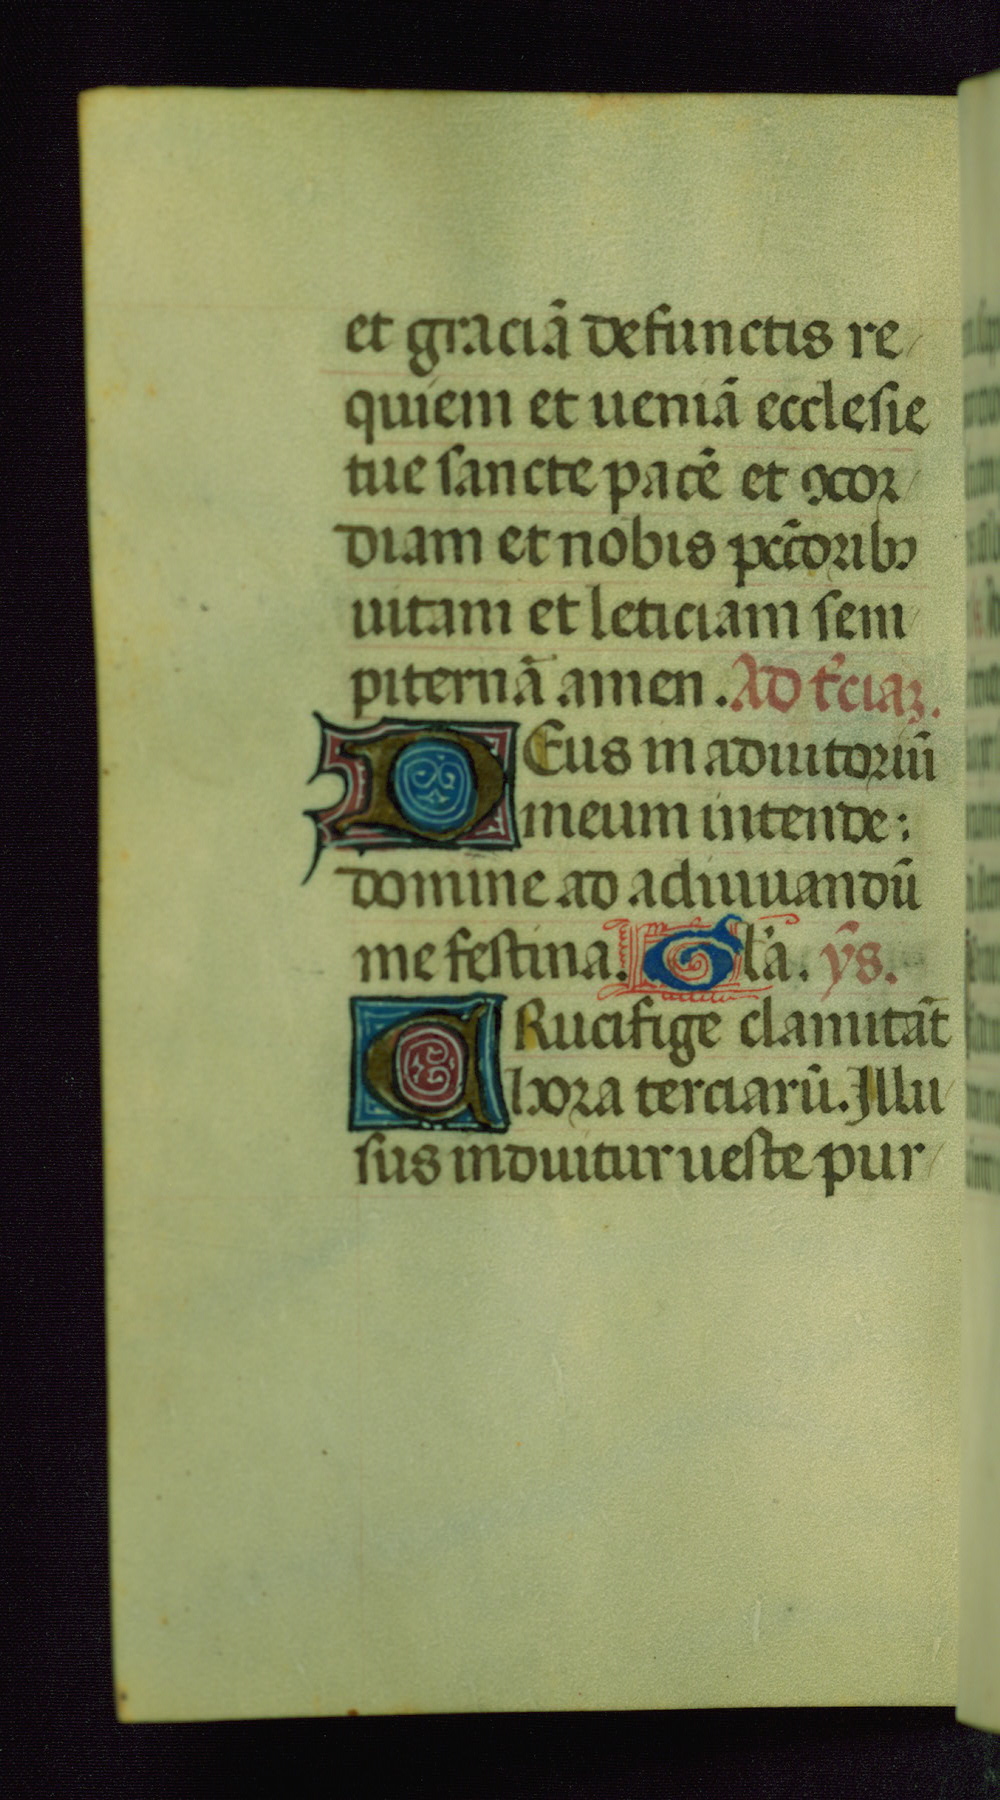 et graciã defunctis re
quiem et ueniã ecclesie
tue sancte pacẽ et ꝯcor
diam et nobis pccõribꝫ
uitam et leticiam sem
piternã amen. Ad t̃ciaꝫ.
DEus in adiutoriũ
meum intende:
domine ad adiuuandũ
me festina. Gl̃a. ỹs.
CRucifige clamitãt
hora terciarũ. Illu
sus induitur ueste pur